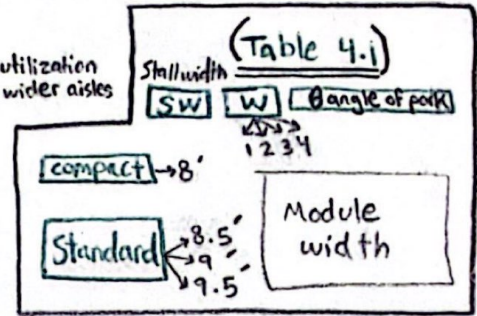 utilization
wider aisles
(Table 4.1)
Stall width
SW W θ angle of park
1 2 3 4
compact → 8'
Standard → 8.5'
→ 9'
→ 9.5'
Module
width